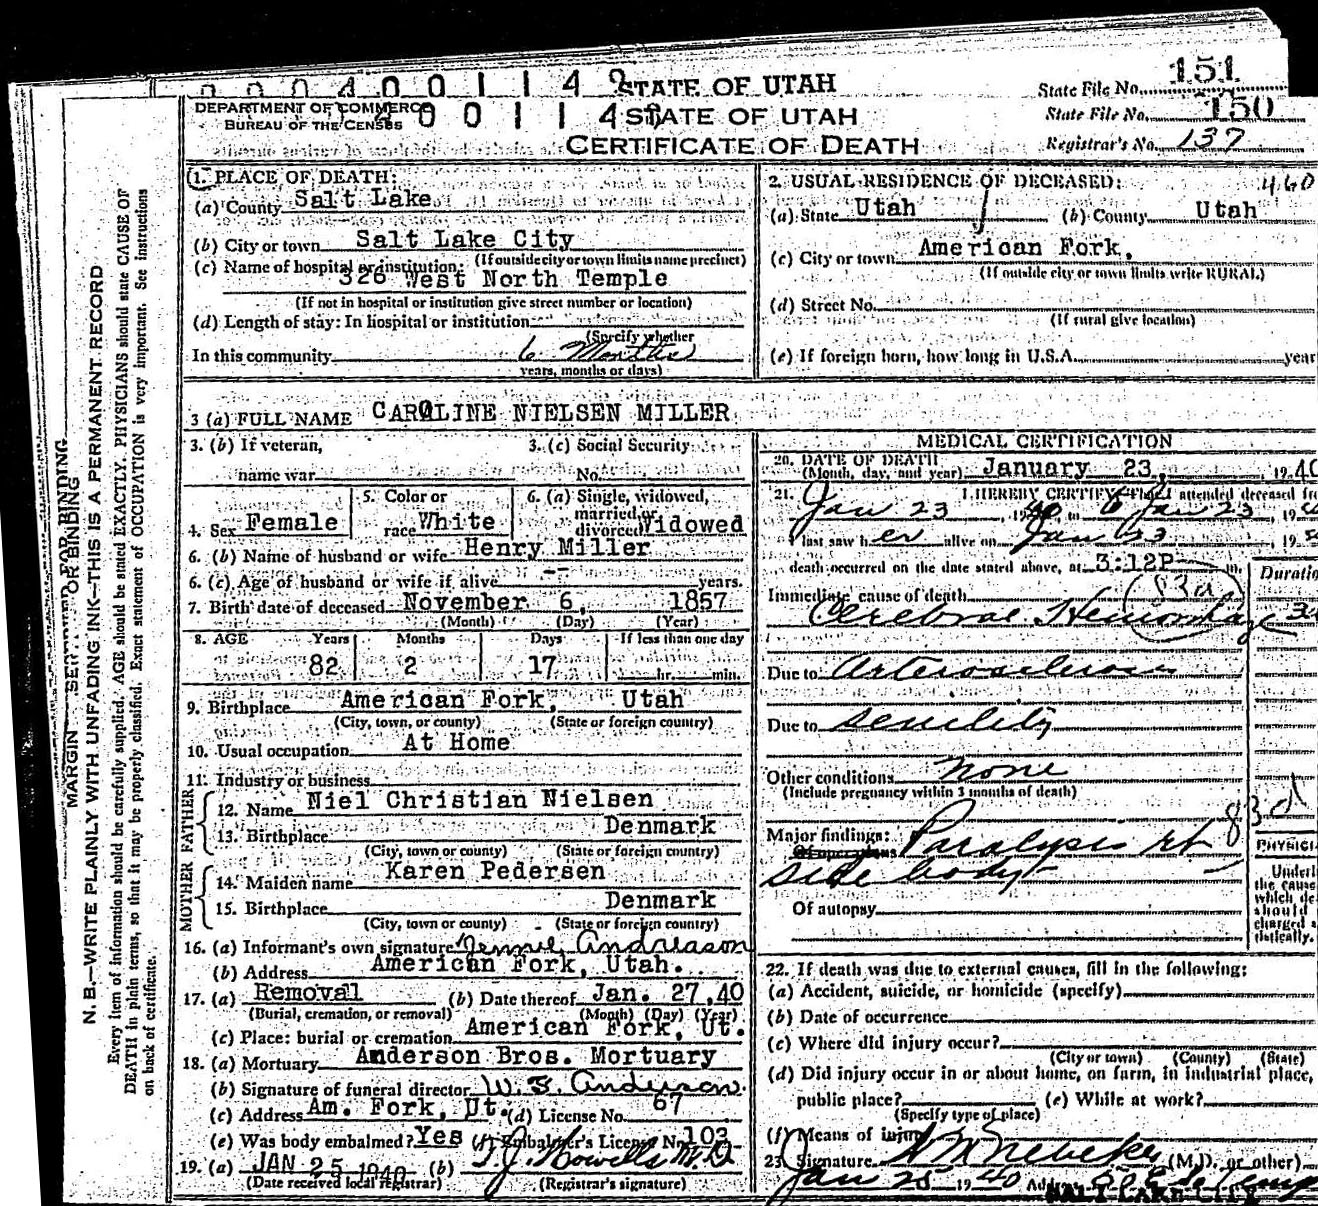 STATE OF UTAH
State File No. 151
DEPARTMENT OF COMMERCE
BUREAU OF THE CENSUS
STATE OF UTAH
State File No. 150
CERTIFICATE OF DEATH
Registrar's No. 137
1. PLACE OF DEATH:
(a) County Salt Lake
(b) City or town Salt Lake City
(If outside city or town limits name precinct)
(c) Name of hospital or institution:
326 West North Temple
(If not in hospital or institution give street number or location)
(d) Length of stay: In hospital or institution
(Specify whether
In this community 6 Months
years, months or days)
2. USUAL RESIDENCE OF DECEASED: 460
(a) State Utah (b) County Utah
(c) City or town American Fork,
(If outside city or town limits write RURAL)
(d) Street No.
(If rural give location)
(e) If foreign born, how long in U.S.A. year
3 (a) FULL NAME CAROLINE NIELSEN MILLER
3. (b) If veteran, 3. (c) Social Security
name war No.
4. Sex Female 5. Color or race White 6. (a) Single, widowed, married or divorced Widowed
6. (b) Name of husband or wife Henry Miller
6. (c) Age of husband or wife if alive -- years.
7. Birth date of deceased November 6, 1857
(Month) (Day) (Year)
8. AGE Years Months Days If less than one day
82 2 17 hr. min.
9. Birthplace American Fork, Utah
(City, town, or county) (State or foreign country)
10. Usual occupation At Home
11. Industry or business
FATHER
12. Name Niel Christian Nielsen
13. Birthplace Denmark
(City, town or county) (State or foreign country)
MOTHER
14. Maiden name Karen Pedersen
15. Birthplace Denmark
(City, town or county) (State or foreign country)
16. (a) Informant's own signature Jennie Andreason
(b) Address American Fork, Utah.
17. (a) Removal (b) Date thereof Jan. 27, 40
(Burial, cremation, or removal) (Month) (Day) (Year)
(c) Place: burial or cremation American Fork, Ut.
18. (a) Mortuary Anderson Bros. Mortuary
(b) Signature of funeral director W. S. Anderson
(c) Address Am. Fork, Ut. (d) License No. 67
(e) Was body embalmed? Yes (f) Embalmer's License No. 103
19. (a) JAN 25 1940 (b) T. J. Howells M.D.
(Date received local registrar) (Registrar's signature)
MEDICAL CERTIFICATION
20. DATE OF DEATH
(Month, day, and year) January 23, 1940
21. I HEREBY CERTIFY That I attended deceased fr
Jan 23, 1940, to Jan 23, 19
last saw her alive on Jan 23
death occurred on the date stated above, at 3:12P m.
Duratio
Immediate cause of death 83a
Cerebral Hemorrhage
Due to Arterosclerosis
Due to Senility
Other conditions None
(Include pregnancy within 3 months of death)
Major findings:
Of operations Paralysis rt
side body
83d
Of autopsy
PHYSICI
Underl
the cause
which de
should
charged s
tistically.
22. If death was due to external causes, fill in the following:
(a) Accident, suicide, or homicide (specify)
(b) Date of occurrence
(c) Where did injury occur?
(City or town) (County) (State)
(d) Did injury occur in or about home, on farm, in industrial place,
public place? (e) While at work?
(Specify type of place)
(f) Means of injury
23. Signature (M.D. or other)
Jan 25 1940 Address
SALT LAKE CITY
MARGIN RESERVED FOR BINDING
N. B.—WRITE PLAINLY WITH UNFADING INK—THIS IS A PERMANENT RECORD
Every item of information should be carefully supplied. AGE should be stated EXACTLY. PHYSICIANS should state CAUSE OF
DEATH in plain terms, so that it may be properly classified. Exact statement of OCCUPATION is very important. See instructions
on back of certificate.